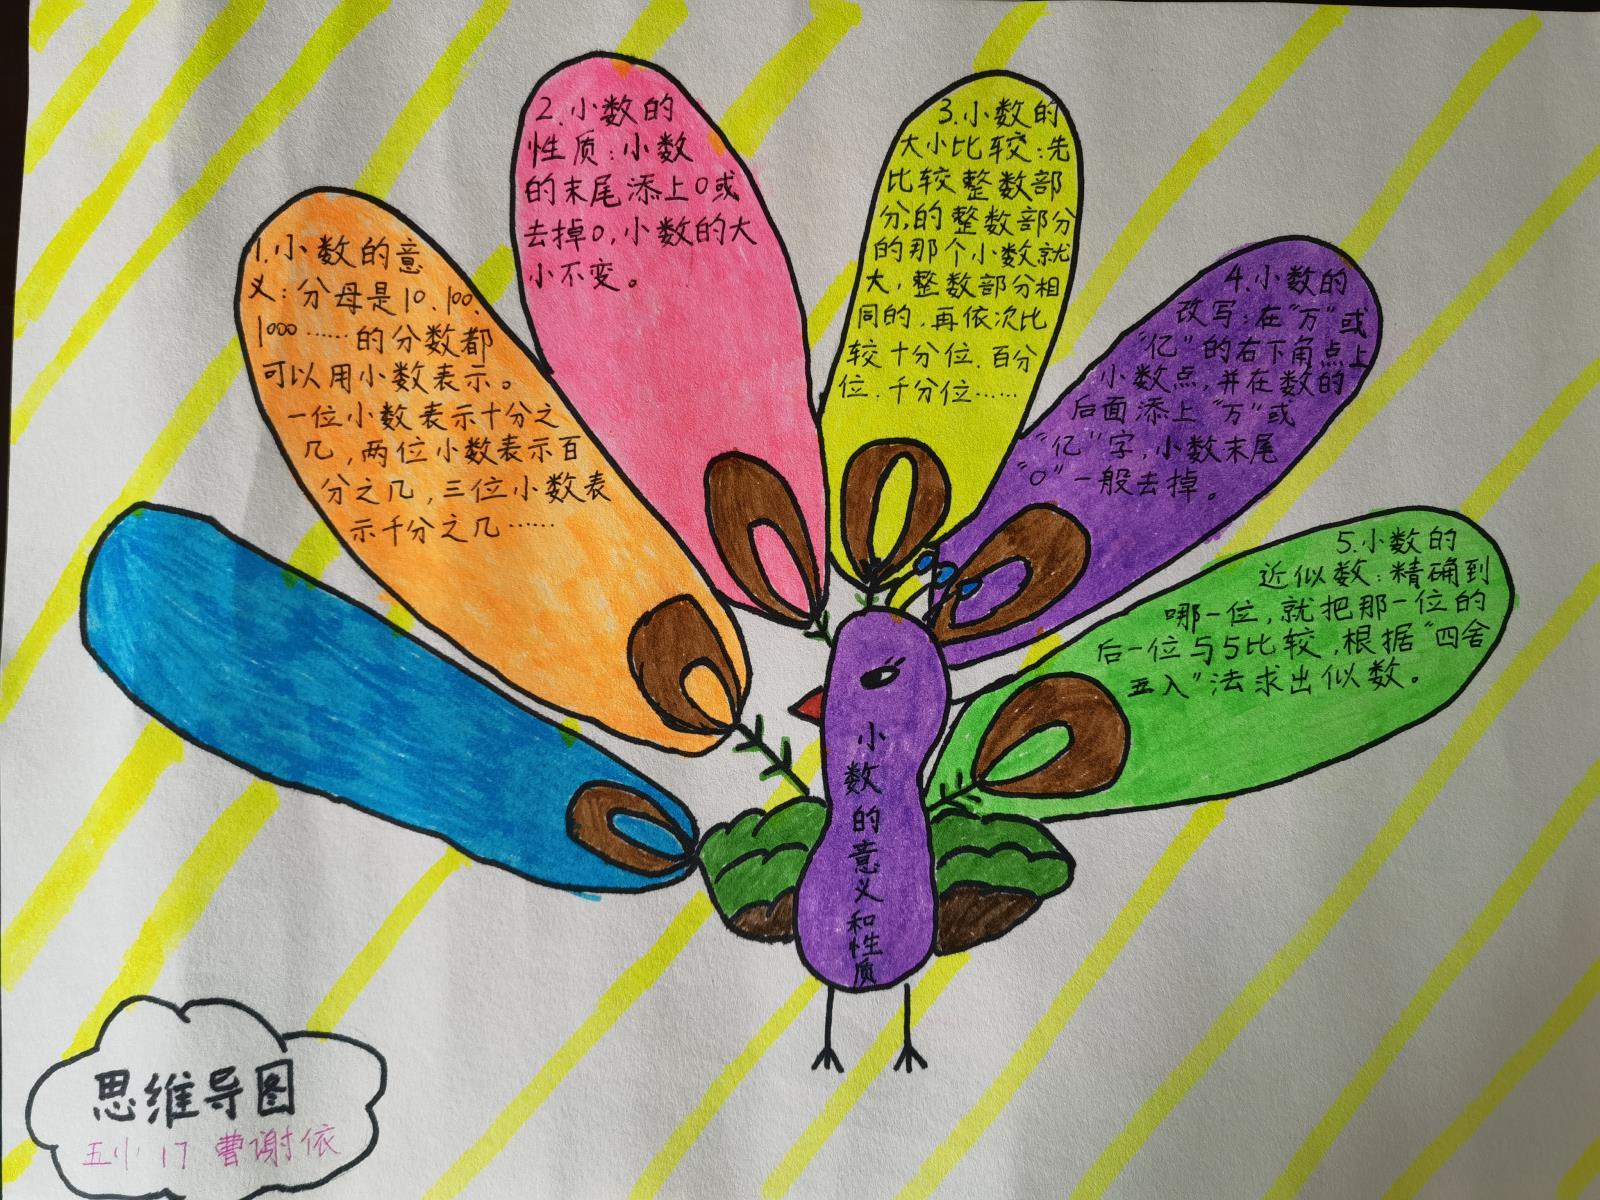 1.小数的意
义：分母是10、100、
1000……的分数都
可以用小数表示。
一位小数表示十分之
几，两位小数表示百
分之几，三位小数表
示千分之几……
2.小数的
性质：小数
的末尾添上0或
去掉0，小数的大
小不变。
3.小数的
大小比较：先
比较整数部
分，的整数部分
的那个小数就
大，整数部分相
同的，再依次比
较十分位、百分
位、千分位……
4.小数的
改写：在"万"或
"亿"的右下角点上
小数点，并在数的
后面添上"万"或
"亿"字，小数末尾
"0"一般去掉。
5.小数的
近似数：精确到
哪一位，就把那一位的
后一位与5比较，根据"四舍
五入"法求出似数。
小数的意义和性质
思维导图
五小 17 曹谢依